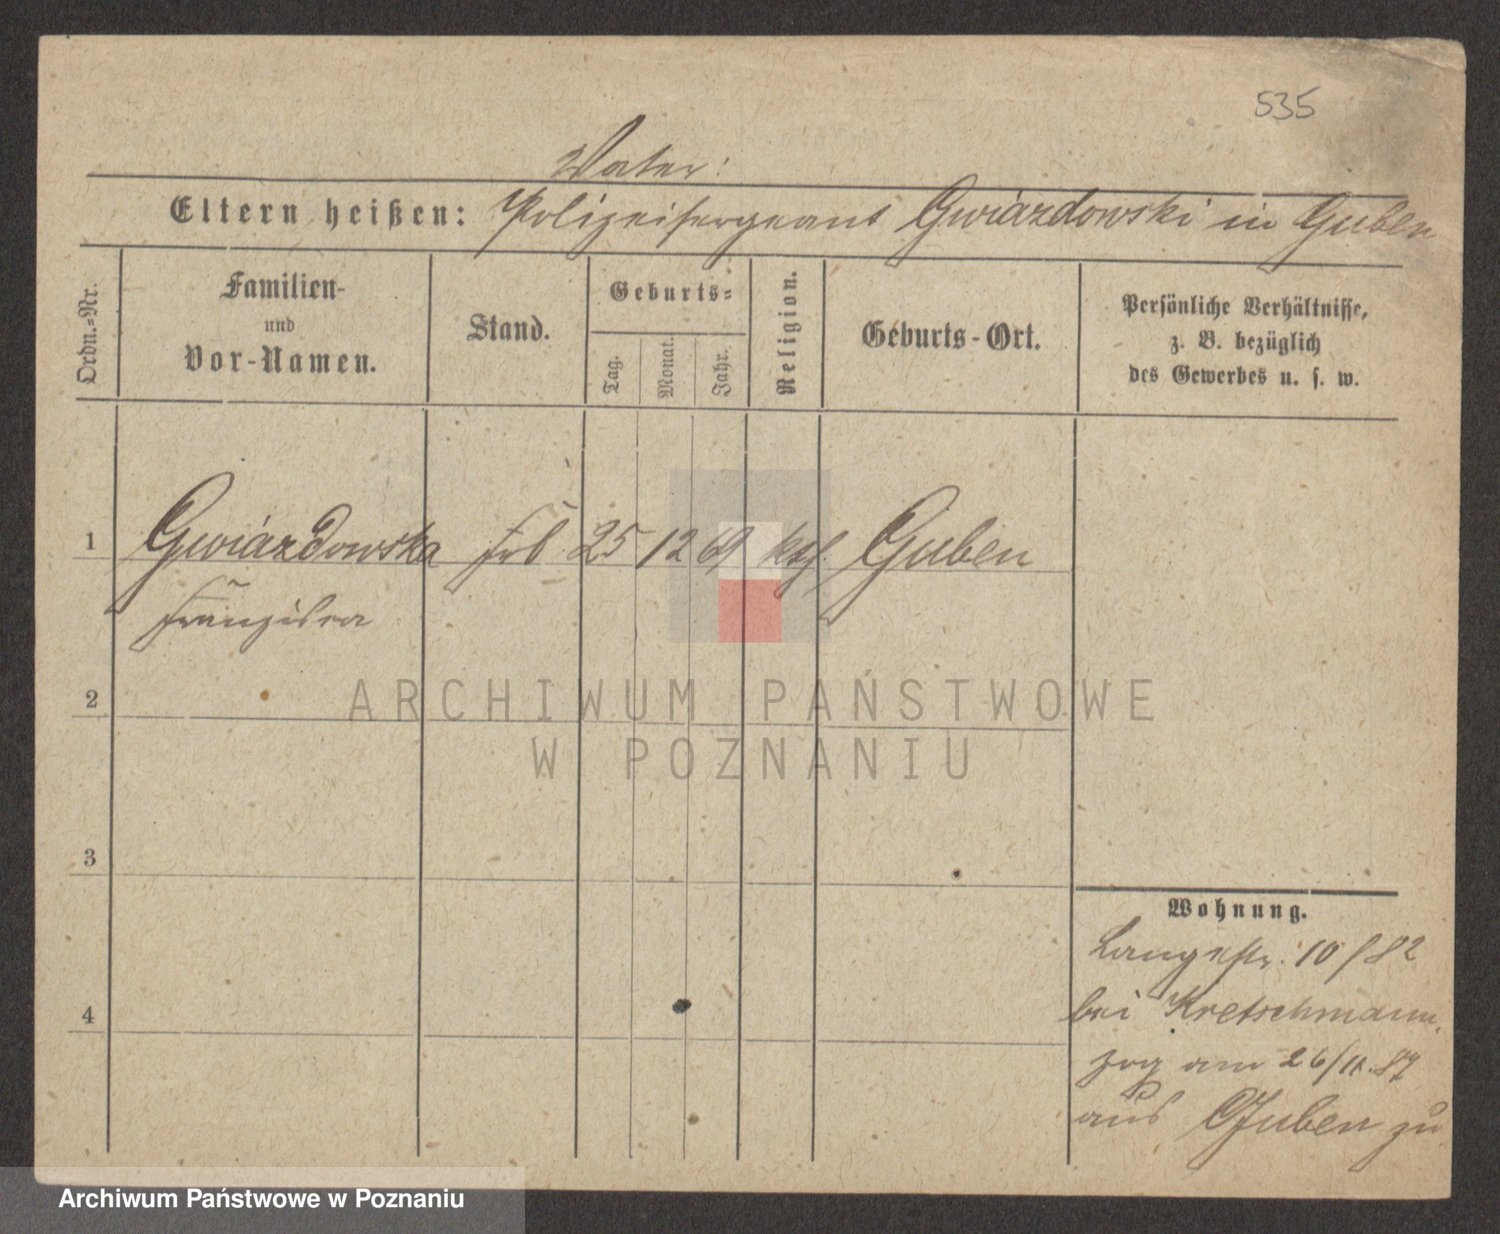 535
Vater:
Eltern heißen: Polizeisergeant Gwiazdowski in Guben
Ordn.=Nr.
Familien-
und
Vor-Namen.
Stand.
Geburts=
Tag.
Monat.
Jahr.
Religion.
Geburts-Ort.
Persönliche Verhältnisse,
z. B. bezüglich
des Gewerbes u. s. w.
1 Gwiazdowska Frl 25 12 69 kath. Guben
Franziska
2
3
4
Wohnung.
Langestr. 10/82
bei Kretschmann,
zog am 26/11.87
aus Guben zu
ARCHIWUM PAŃSTWOWE
W POZNANIU
Archiwum Państwowe w Poznaniu